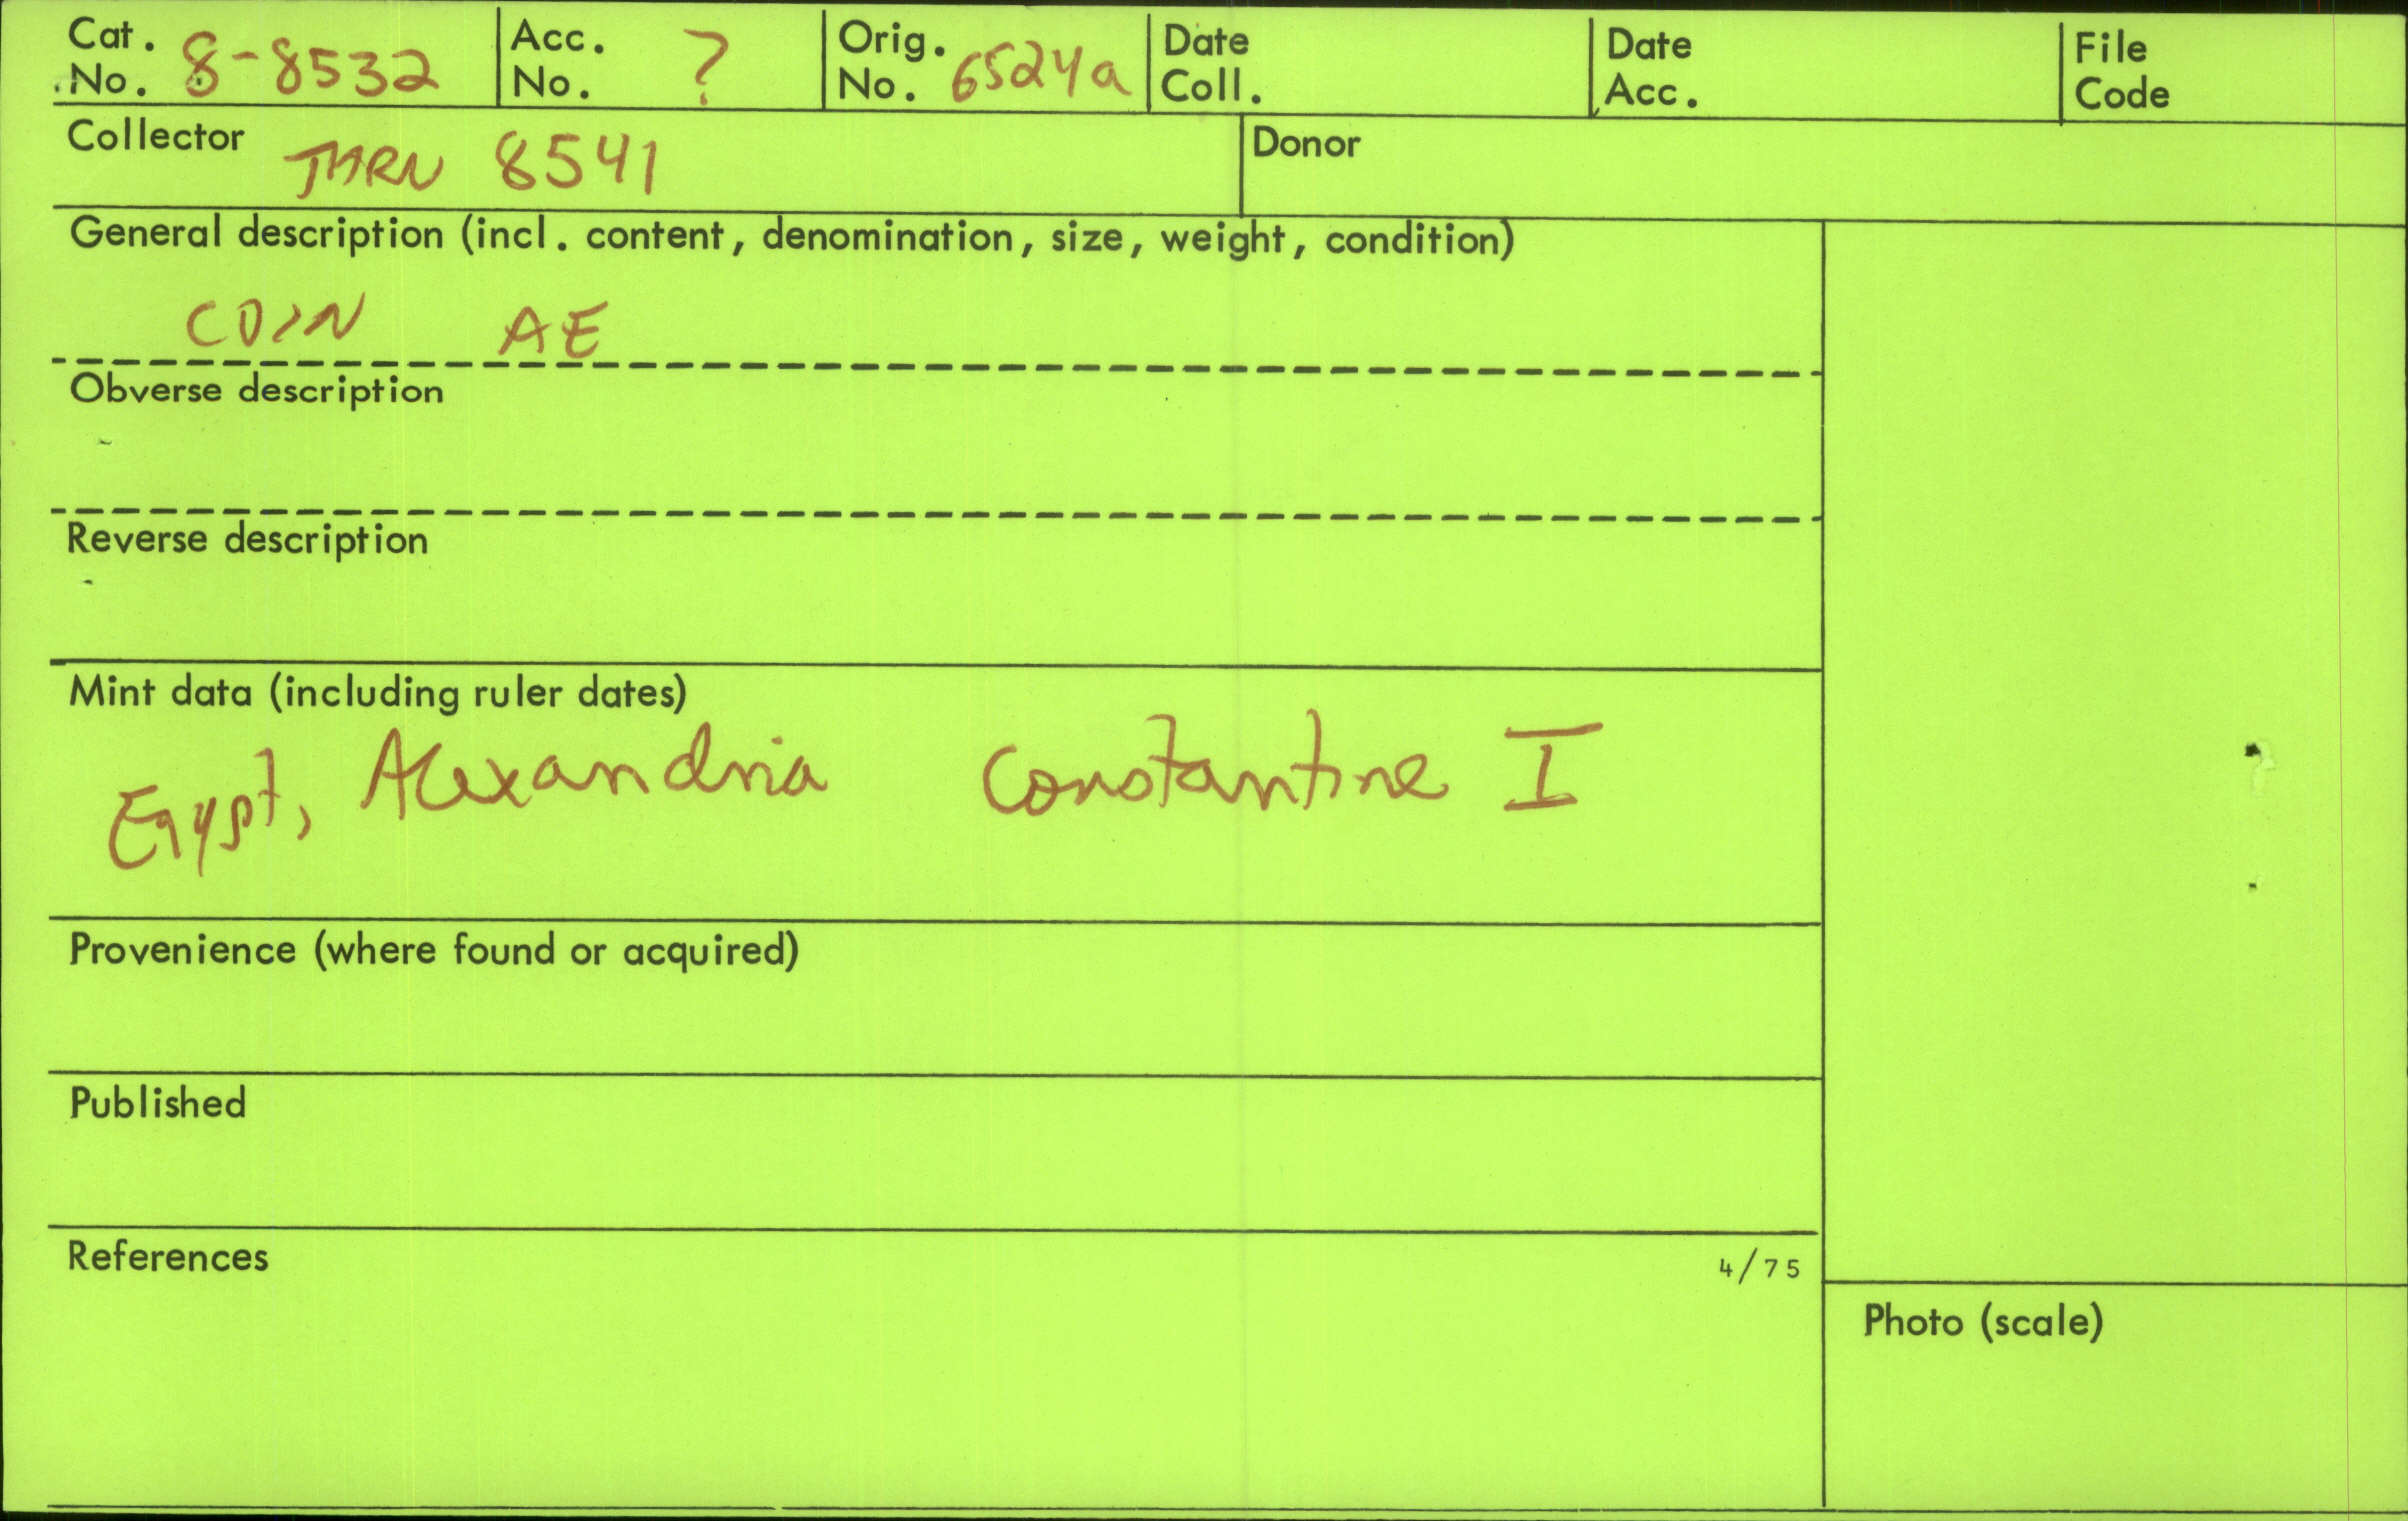 Cat. No. 8-8532 Acc. No. ? Orig. No. 6524a Date Coll. Date Acc. File Code
Collector THRU 8541 Donor
General description (incl. content, denomination, size, weight, condition)
COIN AE
Obverse description
Reverse description
Mint data (including ruler dates)
Egypt, Alexandria Constantine I
Provenience (where found or acquired)
Published
References 4/75
Photo (scale)